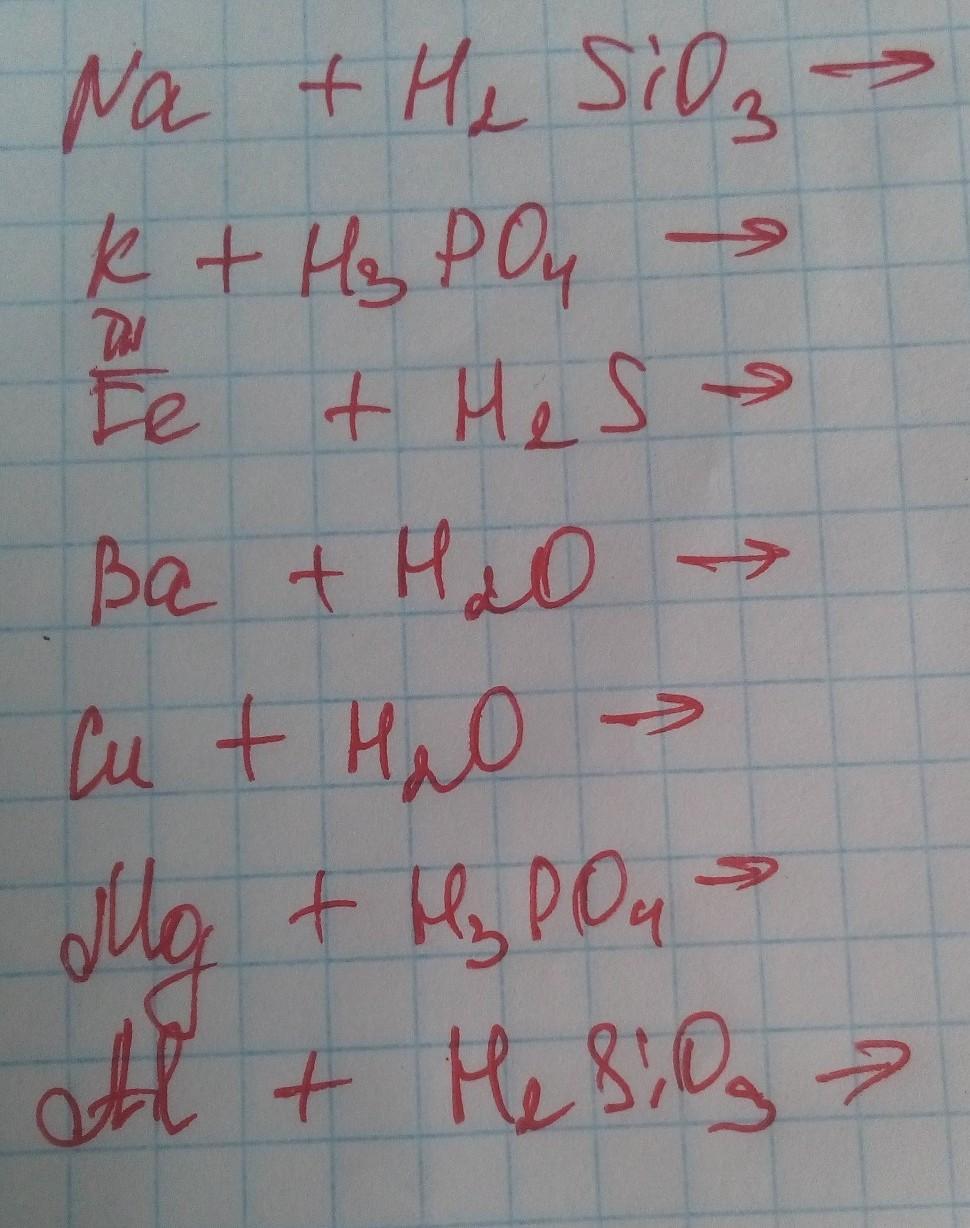 Na + H₂SiO₃ →
K + H₃PO₄ →
III
Fe + H₂S →
Ba + H₂O →
Cu + H₂O →
Mg + H₃PO₄ →
Al + H₂SiO₃ →